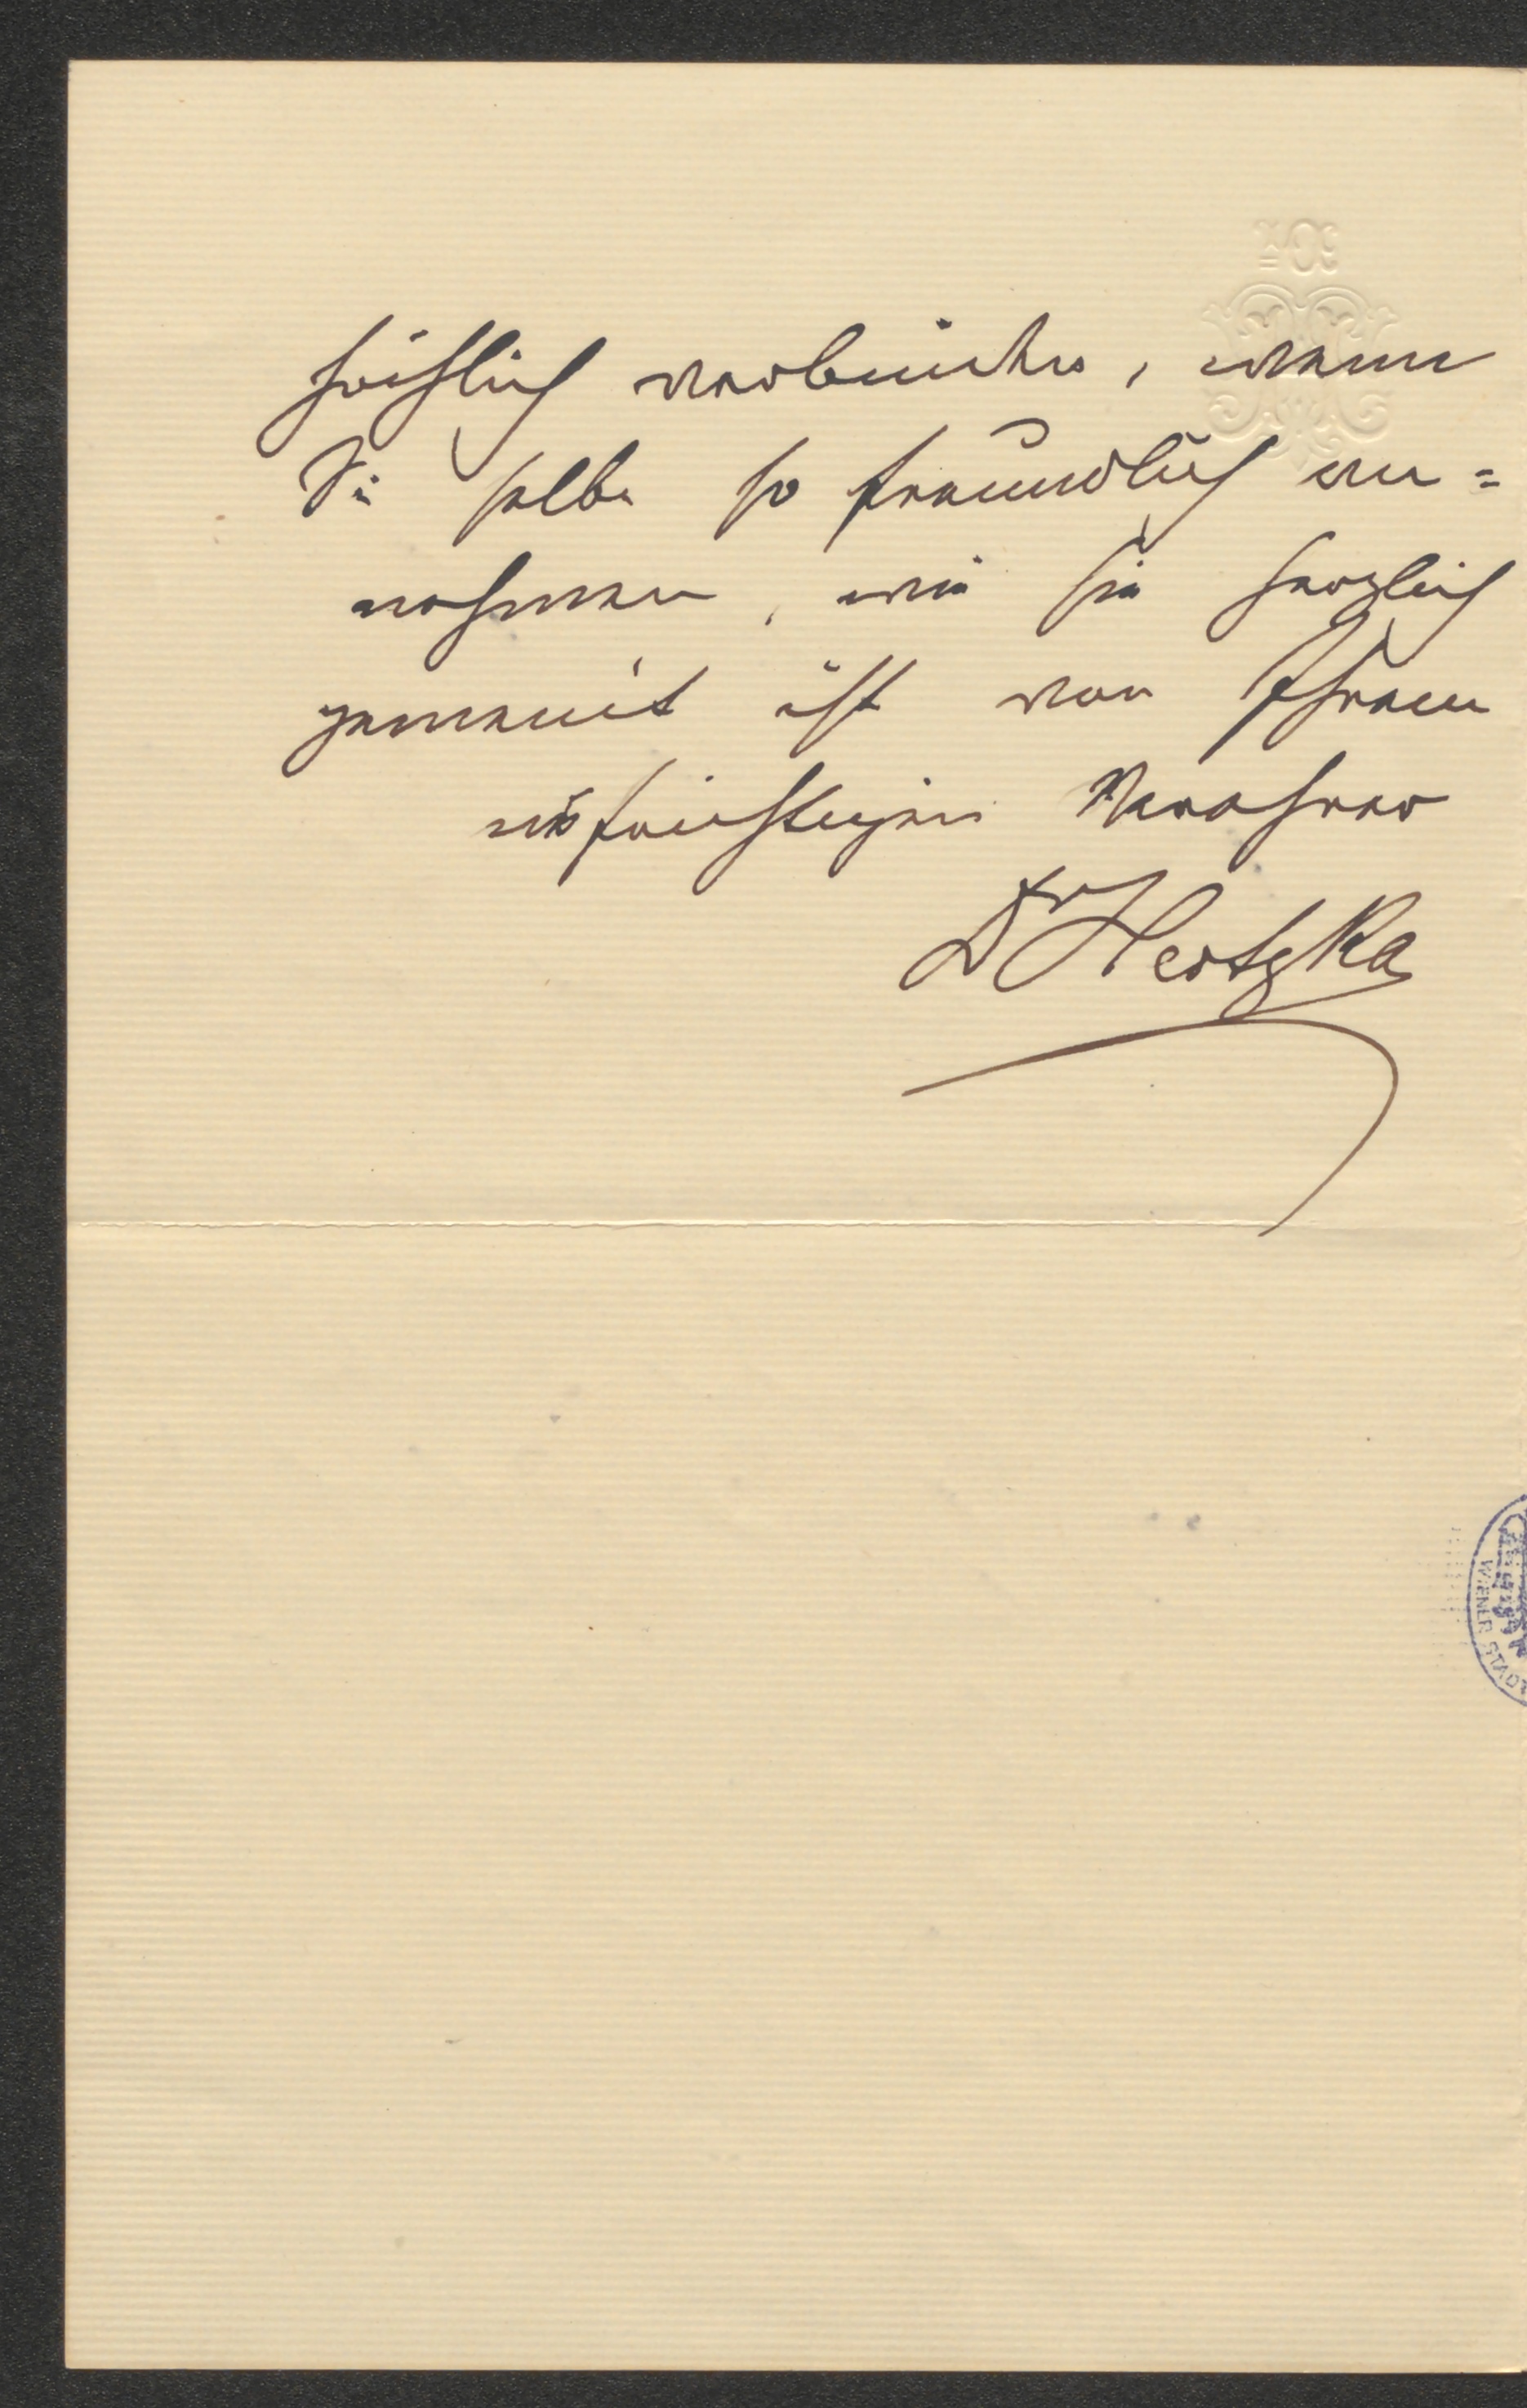 höflich verbunden, wenn
Sie selbe so freundlich an=
nehmen, wie sie herzlich
gemeint ist von Ihrem
aufrichtigen Verehrer
Dr Hertzka
WIENER STAD